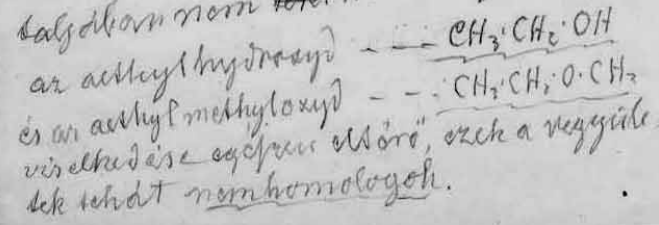 talában nem
az aethylhydroxyd - - - CH₃·CH₂·OH
és az aethylmethyloxyd - - - CH₃·CH₂·O·CH₃
viselkedése egészen eltérő, ezek a vegyüle
tek tehát nem homologok.